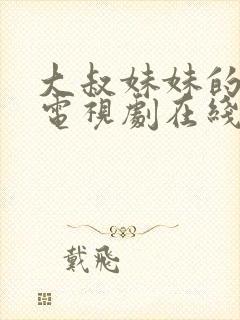 大叔妹妹的
電視劇在綫
戴飛